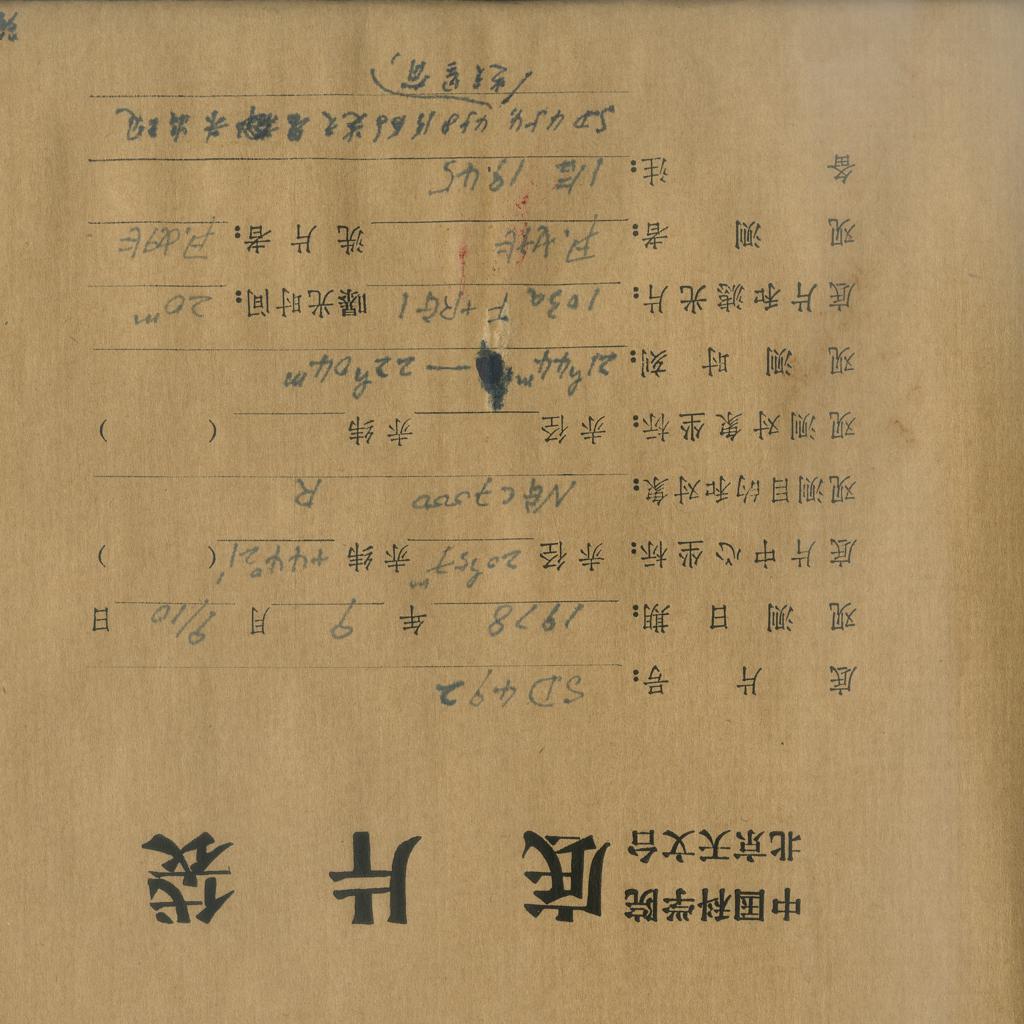 中国科学院
北京天文台
底 片 袋
底 片 号: SD492
观 测 日 期: 1978 年 9 月 9/10 日
底片中心坐标: 赤径 20h57m 赤纬 +44°21′ ( )
观测目的和对象: NGC7000 R
观测对象坐标: 赤径 赤纬 ( )
观 测 时 刻: 21h44m — 22h04m
底片和滤光片: 103aF+RG1 曝光时间: 20m
观 测 者: 洗片者:
备 注: 19.45
SD454, 458